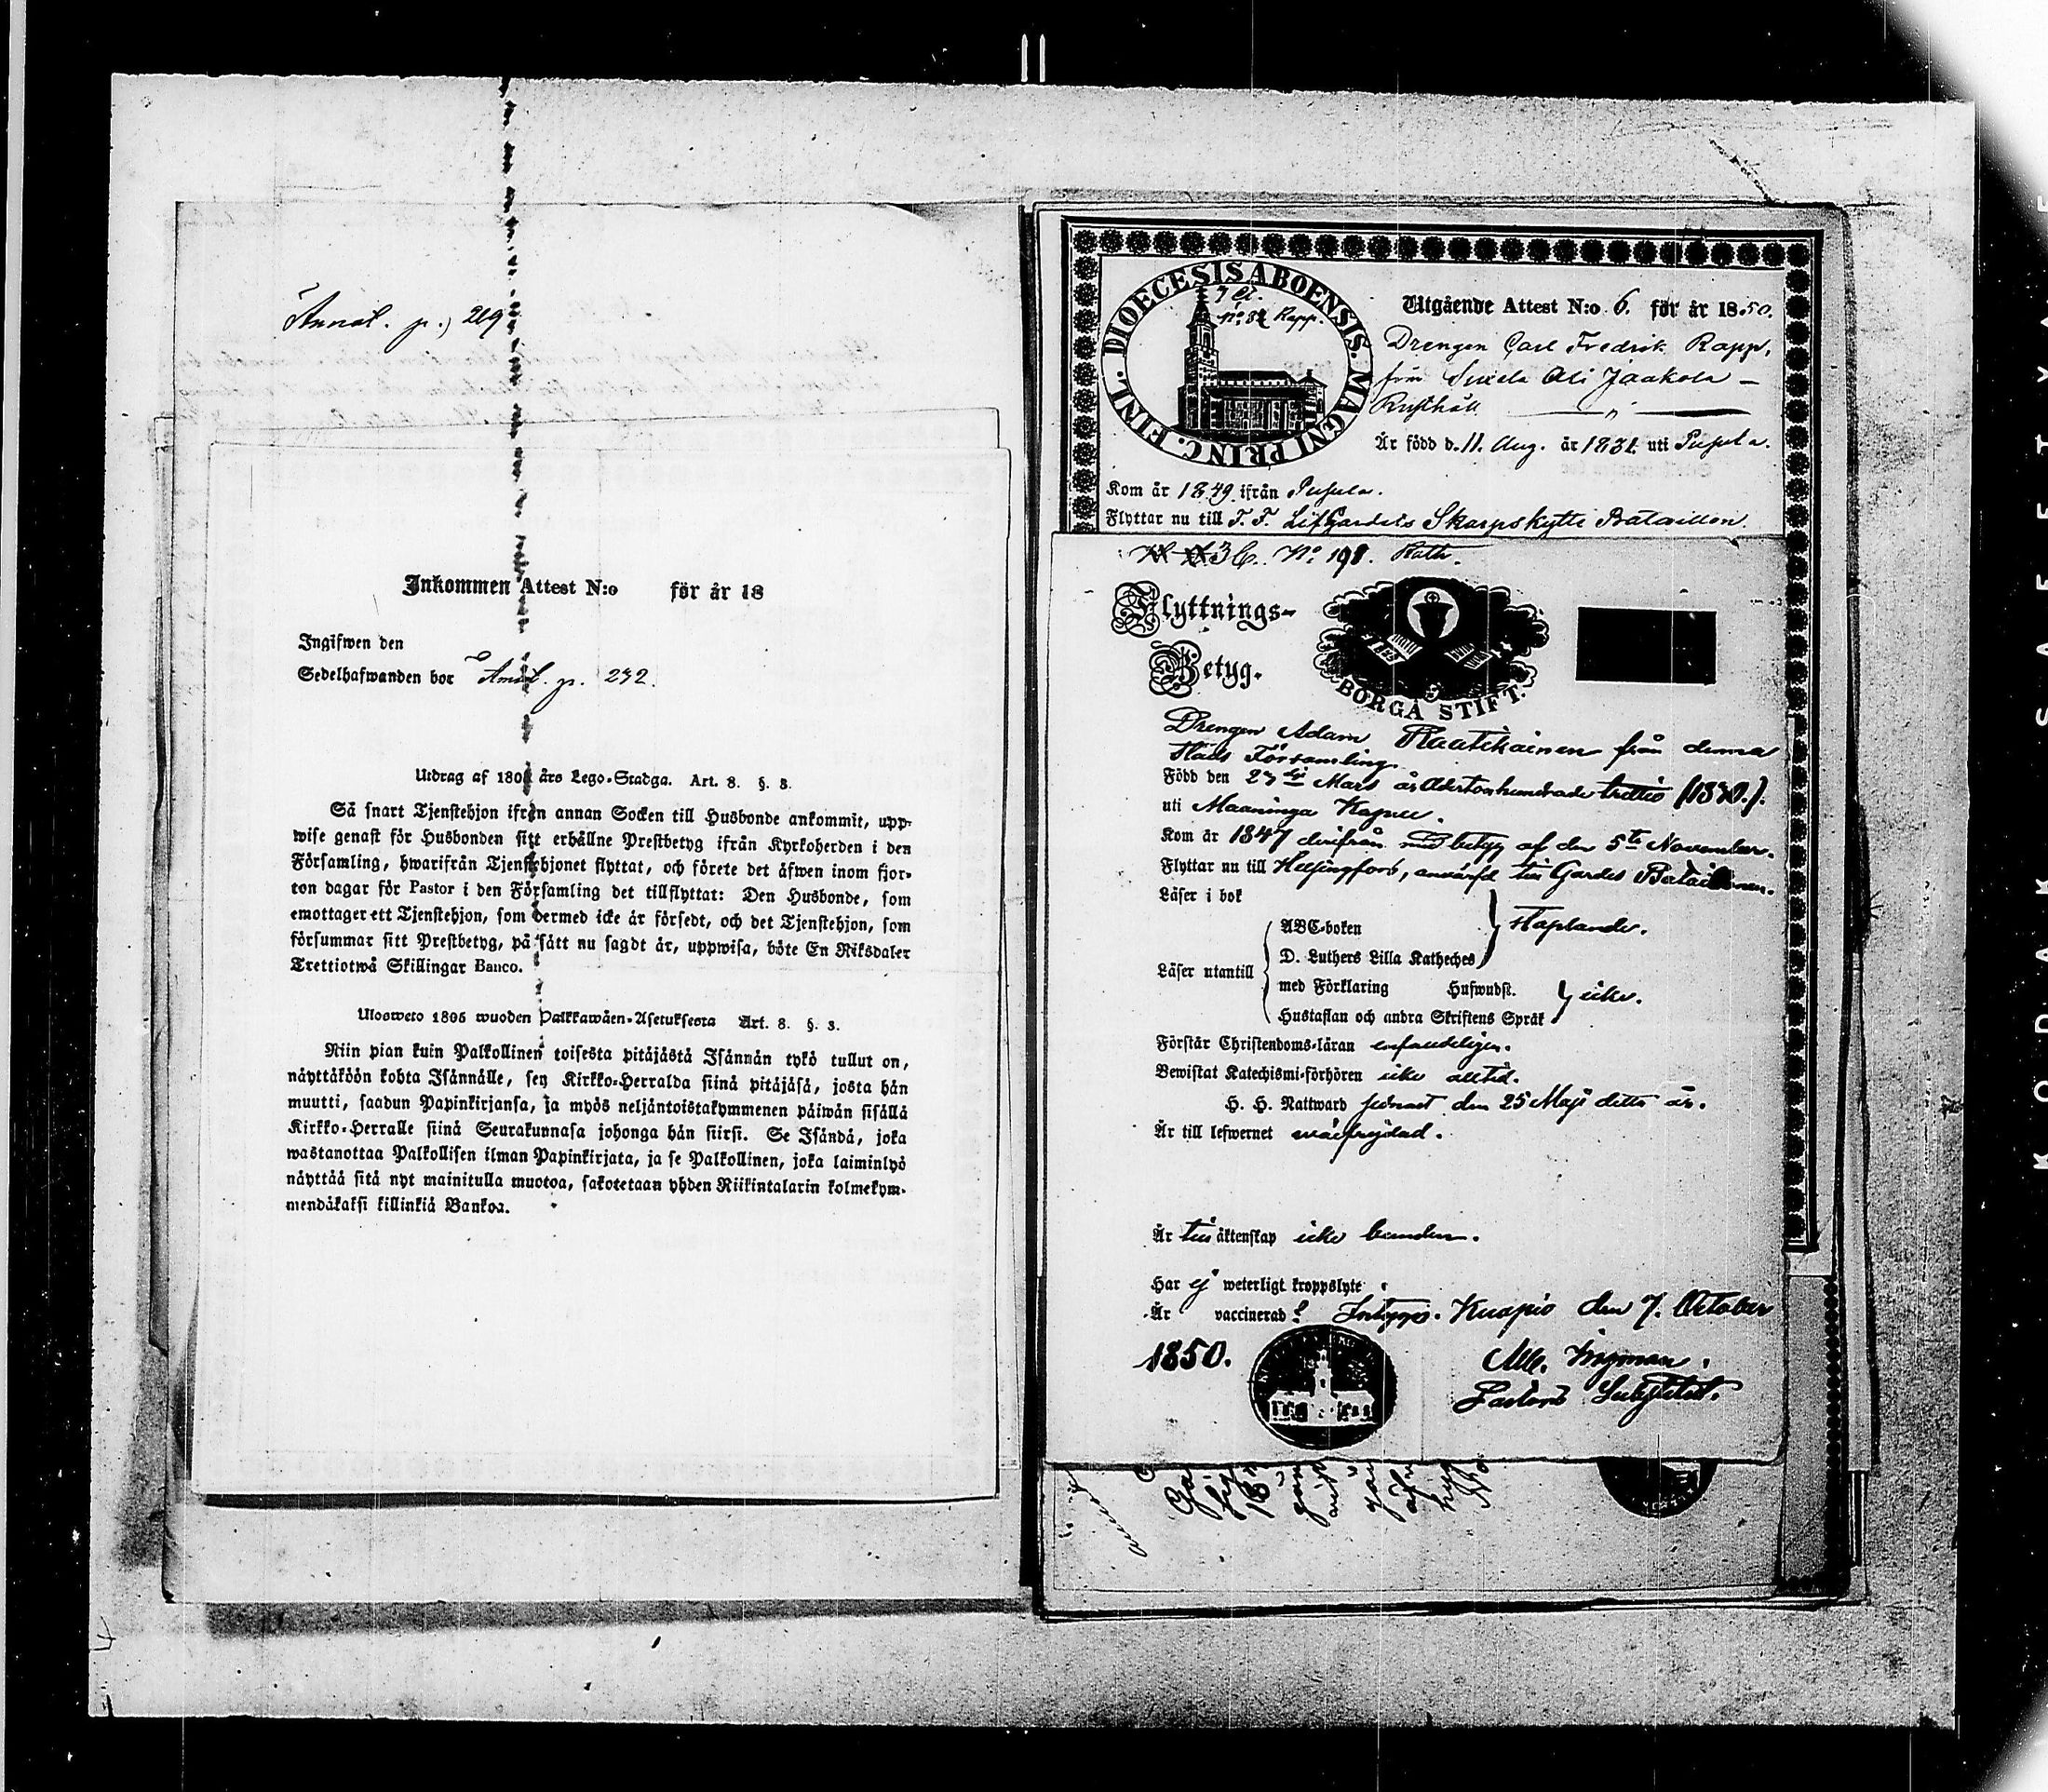 Annot. p. 219
Inkommen Attest N:o för år 18
Ingifwen den
Sedelhafwanden bor Annot. p. 232.
Utdrag af 1805 års Lego-Stadga. Art. 8. §. 3.
Så snart Tjenstehjon ifrån annan Socken till Husbonde ankommit, upp-
wise genast för Husbonden sitt erhållne Prestbetyg ifrån Kyrkoherden i den
Församling, hwarifrån Tjenstehjonet flyttat, och förete det äfwen inom fjor-
ton dagar för Pastor i den Församling det tillflyttat: Den Husbonde, som
emottager ett Tjenstehjon, som dermed icke är försedt, och det Tjenstehjon, som
försummar sitt Prestbetyg, på sätt nu sagdt är, uppwisa, böte En Riksdaler
Trettiotwå Skillingar Banco.
Uloswetö 1805 wuoden Palkkawäen-Asetuksesta Art. 8. §. 3.
Niin pian kuin Palkollinen toisesta pitäjästä Isännän tykö tullut on,
näyttäköön kohta Isännälle, sen Kirkko-Herralda siinä pitäjäsä, josta hän
muutti, saadun Papinkirjansa, ja myös neljäntoistakymmenen päiwän sisällä
Kirkko-Herralle siinä Seurakunnasa johonga hän siirsi. Se Isändä, joka
wastanottaa Palkollisen ilman Papinkirjata, ja se Palkollinen, joka laiminlyö
näyttää sitä nyt mainitulla muotoa, sakotetaan yhden Riikintalarin kolmekym-
mendäkaksi killinkiä Bankoa.
DIOECESIS ABOENSIS. MAGNI PRINC. FINL.
No 82 Rapp.
Utgående Attest N:o 6. för år 1850.
Drengen Carl Fredrik Rapp,
från Jaakola
Rusthåll
Är född d. 11. Aug. år 1831. uti Pusula.
Kom år 1849. ifrån Pusula.
Flyttar nu till F. F. LifGardets Skarpskytte Bataillon.
36. No 198. Rath.
Flyttnings-
Betyg.
BORGÅ STIFT.
Drengen Adam Raatikainen från denna
Stads Församling.
Född den 23dje Mars år Adertonhundrade trettio (1830.).
uti Maaninga Kapell.
Kom år 1847 derifrån med betyg af den 5te November.
Flyttar nu till Helsingfors, använd till Gardes Bataillonen.
Läser i bok
Läser utantill
ABC-boken
D. Luthers Lilla Katheches
staplande.
med Förklaring Hufwudst.
Hustaflan och andra Skriftens Språk
icke.
Förstår Christendoms-läran enfaldeligen.
Bewistat Katechismi-förhören icke alltid.
H. H. Nattward senast den 25 Maji detta år.
Är till lefwernet wälfrejdad.
Är till äktenskap icke bunden.
Har ej weterligt kroppslyte.
Är vaccinerad? Intygas. Kuopio den 7. October
1850.
Alb. Ingman.
Pastors Substitut.
KODAK SAFETY